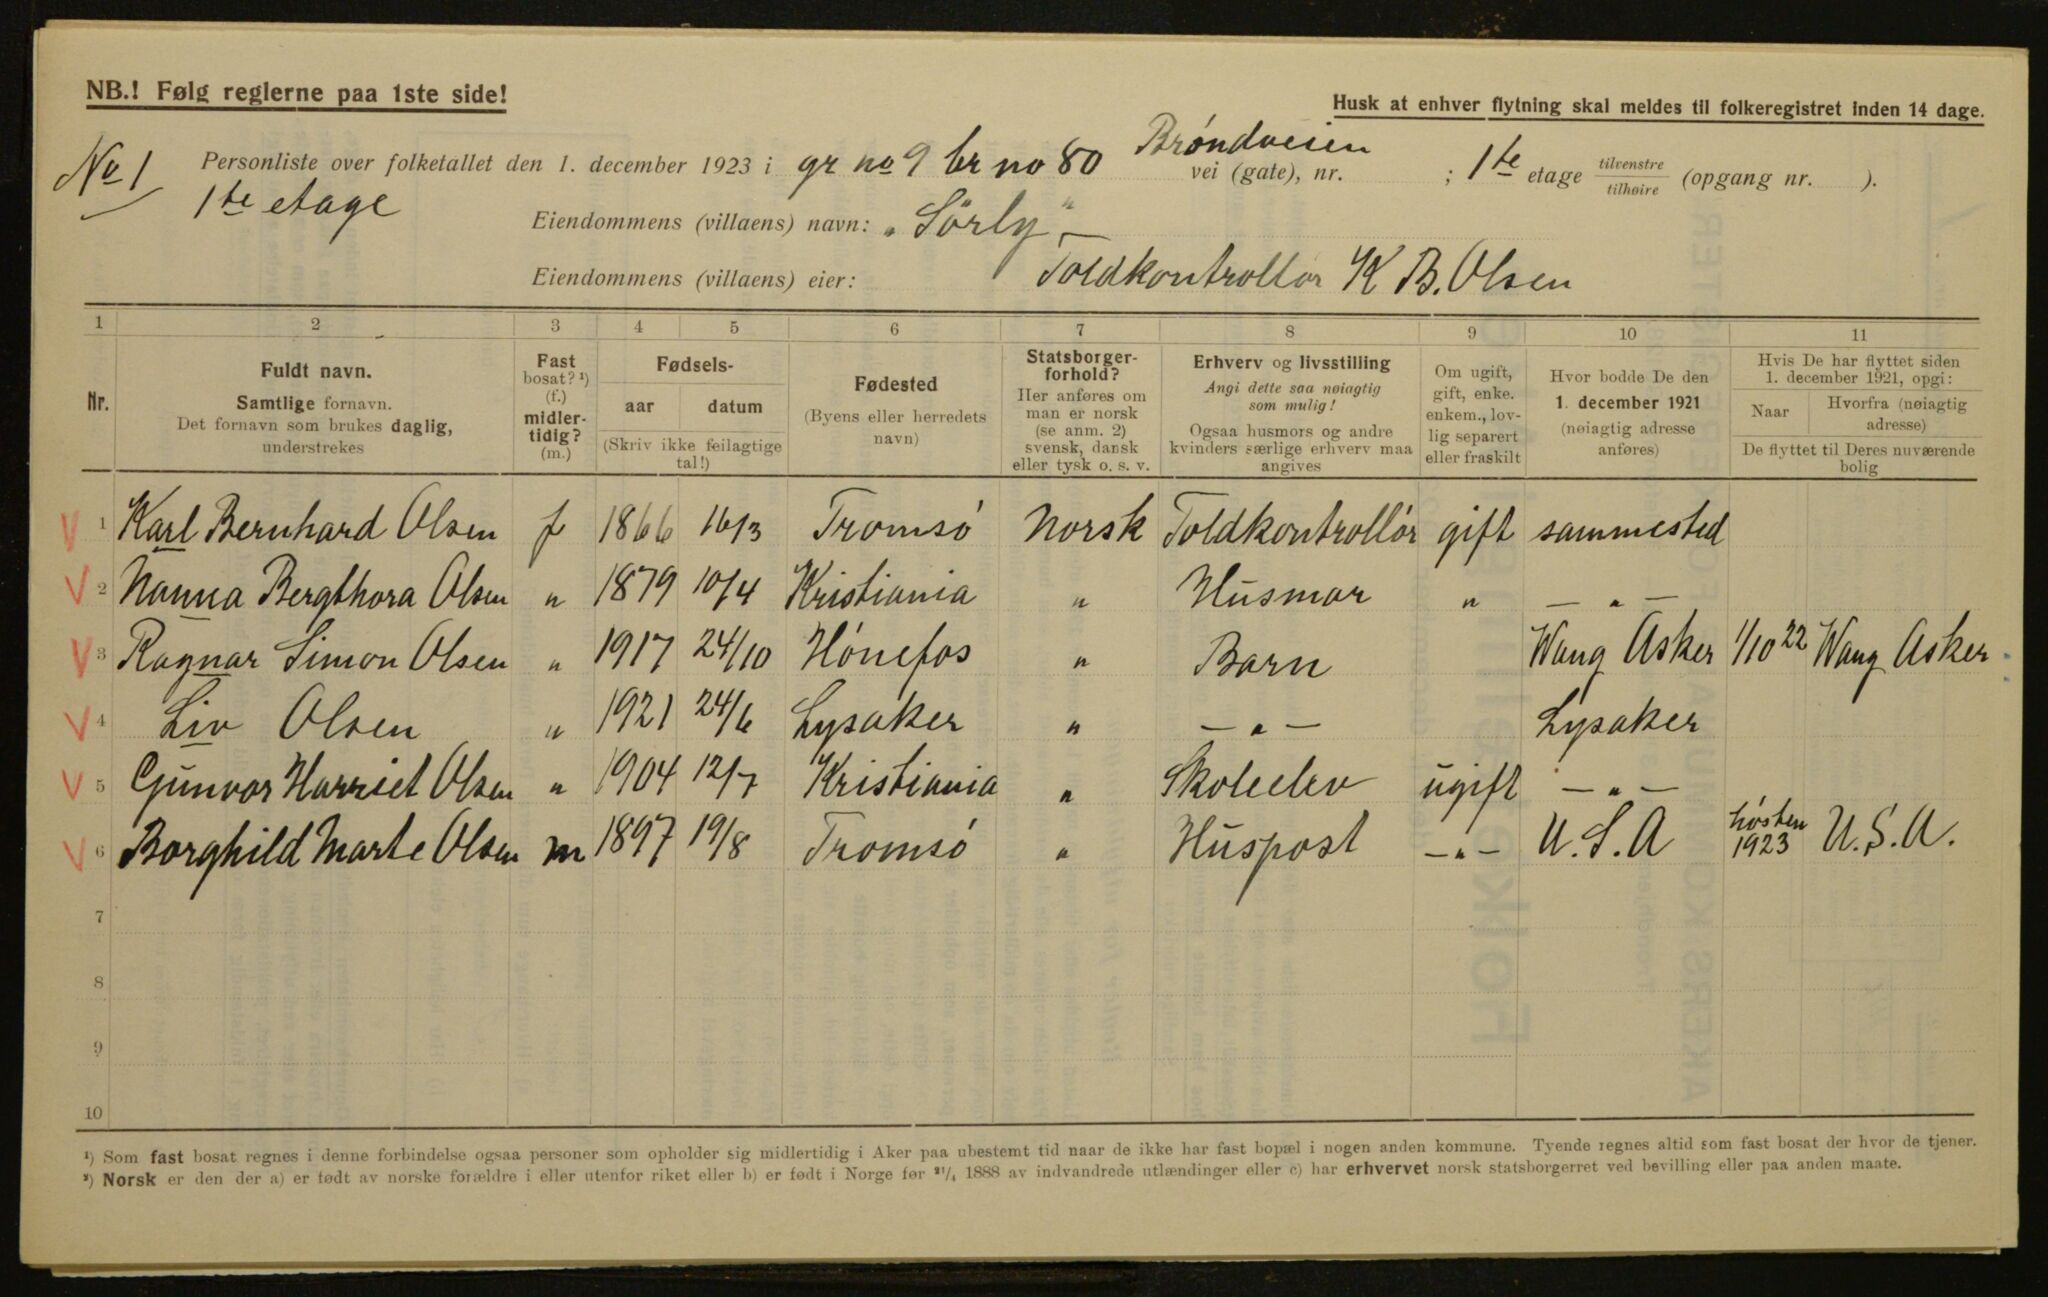 NB.! Følg reglerne paa 1ste side!
Husk at enhver flytning skal meldes til folkeregistret inden 14 dage.
No 1
Personliste over folketallet den 1. december 1923 i gr no 9 br no 80 Brøndveien vei (gate), nr. ; 1te etage tilvenstre tilhøire (opgang nr. ).
1te etage
Eiendommens (villaens) navn: „Sørly"
Eiendommens (villaens) eier: Toldkontrollør K B. Olsen
1 2 3 4 5 6 7 8 9 10 11
Nr.
Fuldt navn.
Samtlige fornavn.
Det fornavn som brukes daglig,
understrekes
Fast
bosat? ¹)
(f.)
midler-
tidig?
(m.)
Fødsels-
aar datum
(Skriv ikke feilagtige
tal!)
Fødested
(Byens eller herredets
navn)
Statsborger-
forhold?
Her anføres om
man er norsk
(se anm. 2)
svensk, dansk
eller tysk o. s. v.
Erhverv og livsstilling
Angi dette saa nøiagtig
som mulig!
Ogsaa husmors og andre
kvinders særlige erhverv maa
angives
Om ugift,
gift, enke.
enkem., lov-
lig separert
eller fraskilt
Hvor bodde De den
1. december 1921
(nøiagtig adresse
anføres)
Hvis De har flyttet siden
1. december 1921, opgi:
Naar
Hvorfra (nøiagtig
adresse)
De flyttet til Deres nuværende
bolig
V 1 Karl Bernhard Olsen f 1866 16/3 Tromsø Norsk Toldkontrollør gift sammested
V 2 Nanna Bergthora Olsen „ 1879 10/4 Kristiania „ Husmor „ — „ —
V 3 Ragnar Simon Olsen „ 1917 24/10 Hønefos „ Barn Wang Asker 1/10 22 Wang Asker
V 4 Liv Olsen „ 1921 24/6 Lysaker „ — „ — Lysaker
V 5 Gunvor Harriet Olsen „ 1904 12/7 Kristiania „ Skoleelev ugift — „ —
V 6 Borghild Marte Olsen m 1897 19/8 Tromsø „ Huspost — „ — U. S. A høsten 1923 U. S. A.
7
8
9
10
¹) Som fast bosat regnes i denne forbindelse ogsaa personer som opholder sig midlertidig i Aker paa ubestemt tid naar de ikke har fast bopæl i nogen anden kommune. Tyende regnes altid som fast bosat der hvor de tjener.
²) Norsk er den der a) er født av norske forældre i eller utenfor riket eller b) er født i Norge før ²¹/₄ 1888 av indvandrede utlændinger eller c) har erhvervet norsk statsborgerret ved bevilling eller paa anden maate.